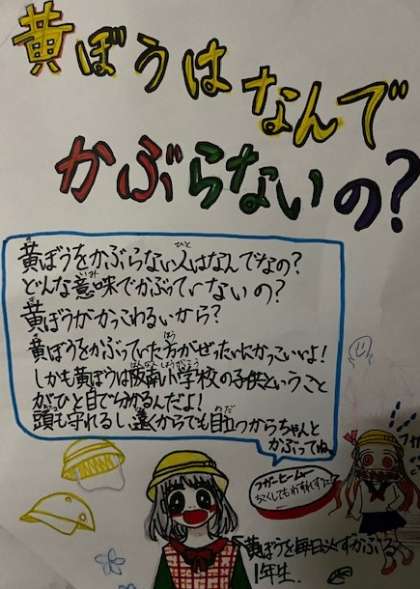 黄ぼうはなんで
かぶらないの？
黄ぼうをかぶらない人はなんでなの？
どんな意味でかぶっていないの？
黄ぼうがかっこわるいから？
黄ぼうをかぶっていた方がぜったいにかっこいいよ！
しかも黄ぼうは阪南小学校の子供ということ
がひと目で分かるんだよ！
頭も守れるし、遠くからでも目立つからちゃんと
かぶってね
黄ぼうを毎日必ずかぶる
1年生.